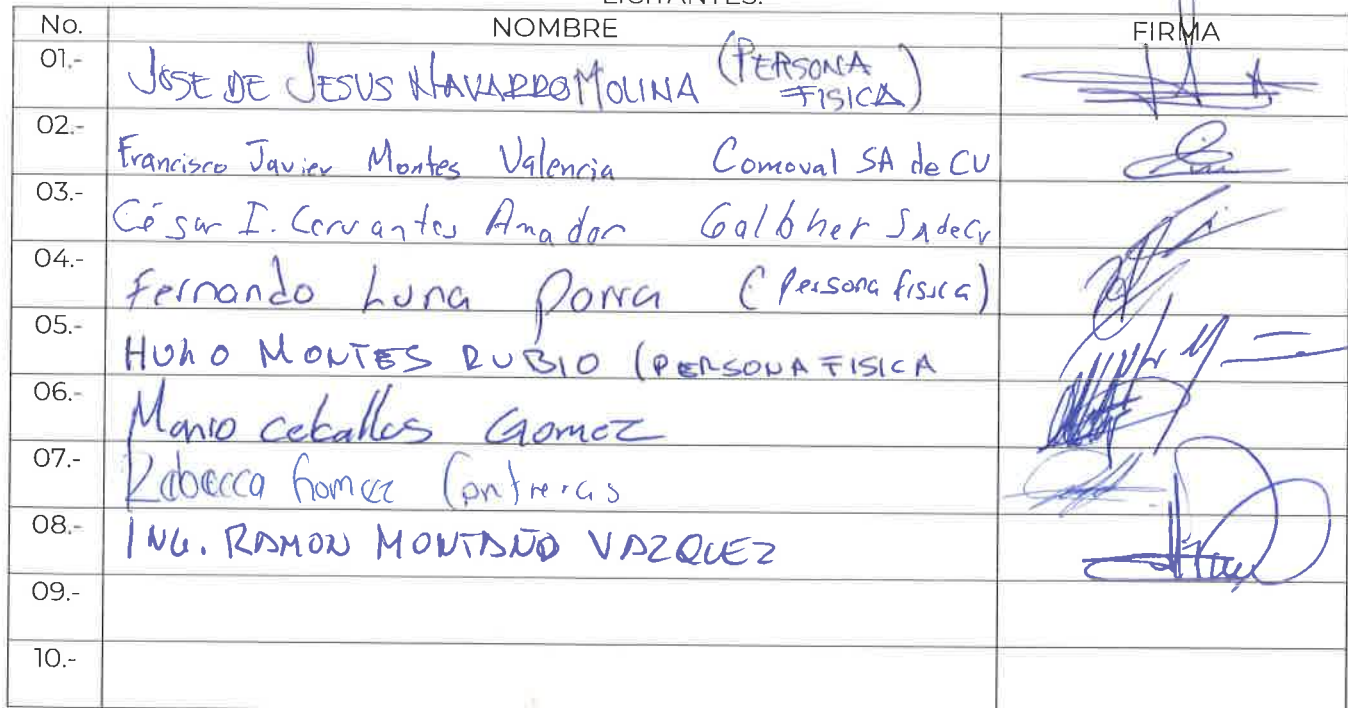 LICITANTES.
No. NOMBRE FIRMA
01.- JOSE DE JESUS NAVARRO MOLINA (PERSONA FISICA)
02.- Francisco Javier Montes Valencia Comoval SA de CV
03.- César I. Cervantes Amador Galbher SA de CV
04.- Fernando Luna Porra (Persona fisica)
05.- HUGO MONTES RUBIO (PERSONA FISICA
06.- Mario Ceballos Gomez
07.- Rebecca Gomez Contreras
08.- ING. RAMON MONTAÑO VAZQUEZ
09.-
10.-